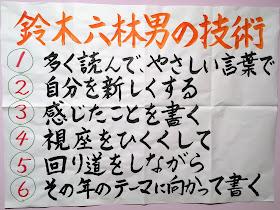 鈴木六林男の技術
① 多く読んで、やさしい言葉で
② 自分を新しくする
③ 感じたことを書く
④ 視座をひくくして
⑤ 回り道をしながら
⑥ その年のテーマに向かって書く